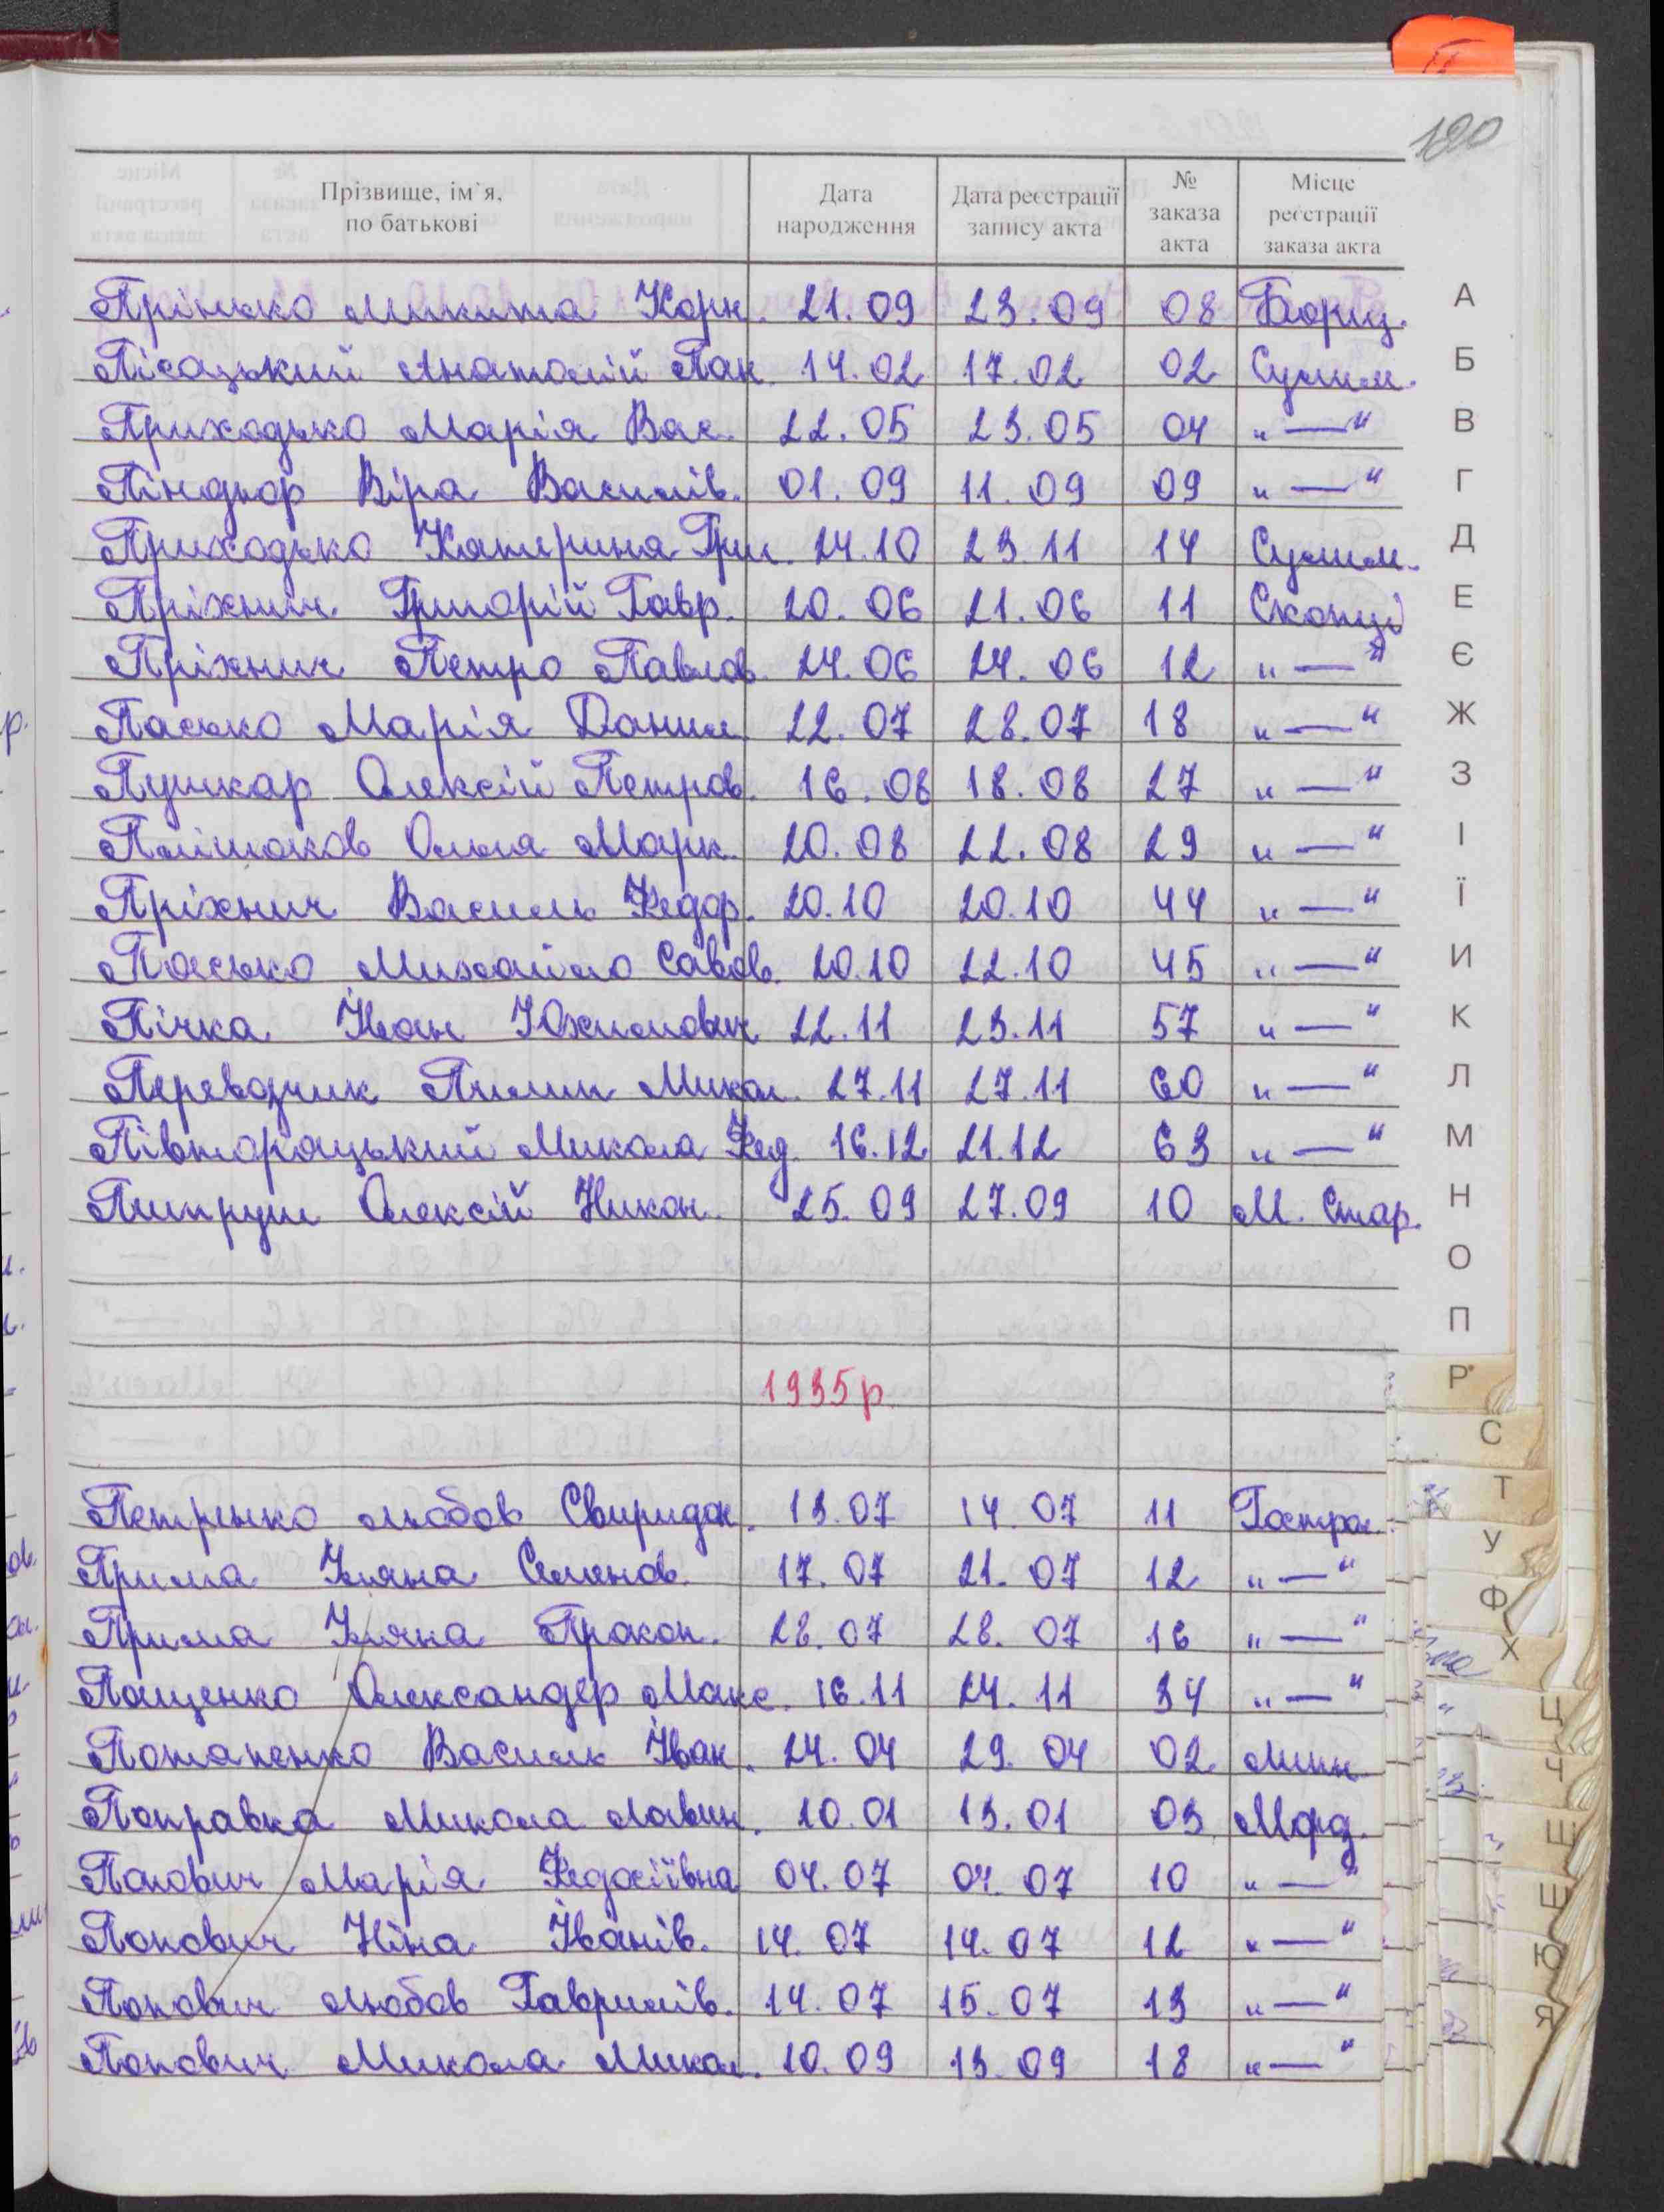 120
Прізвище, ім'я, по батькові | Дата народження | Дата реєстрації запису акта | № заказа акта | Місце реєстрації заказа акта
Прінько Микита Корн. 21.09 23.09 08 Бориц.
Пісоцький Анатолій Пан. 14.02 17.02 02 Сулим.
Приходько Марія Вас. 22.05 23.05 04 „—“
Піндюр Віра Василів. 01.09 11.09 09 „—“
Приходько Катерина Гри. 24.10 23.11 14 Сулим.
Пріхнич Григорій Гавр. 20.06 21.06 11 Скопці
Пріхнич Петро Павлов. 24.06 24.06 12 „—“
Пасько Марія Данил. 22.07 28.07 18 „—“
Пушкар Олексій Петров. 16.08 18.08 27 „—“
Ольга Марк. 20.08 22.08 29 „—“
Пріхнич Василь Федор. 20.10 20.10 44 „—“
Пасько Михайло Савов. 20.10 22.10 45 „—“
Пічка Іван Юхимович 22.11 23.11 57 „—“
Перевозчик Пилип Микол. 27.11 27.11 60 „—“
Півторацький Микола Фед. 16.12 21.12 63 „—“
Олексій Никон. 25.09 27.09 10 М. Стар.
1935р.
Петренко Любов Свиридон. 13.07 14.07 11 Гостр.
Прима Уляна Семенов. 17.07 21.07 12 „—“
Прима Уляна Прокоп. 28.07 28.07 16 „—“
Пащенко Олександер Макс. 16.11 24.11 34 „—“
Потапенко Василь Іван. 24.04 29.04 02
Поправка Микола Лавин. 10.01 13.01 03
Попович Марія Федосіївна 04.07 04.07 10 „—“
Попович Ніна Іванів. 14.07 14.07 12 „—“
Попович Любов Гаврилів. 14.07 15.07 13 „—“
Попович Микола Микол. 10.09 13.09 18 „—“
А
Б
В
Г
Д
Е
Є
Ж
З
І
Ї
И
К
Л
М
Н
О
П
Р
С
Т
У
Ф
Х
Ц
Ч
Ш
Щ
Ю
Я